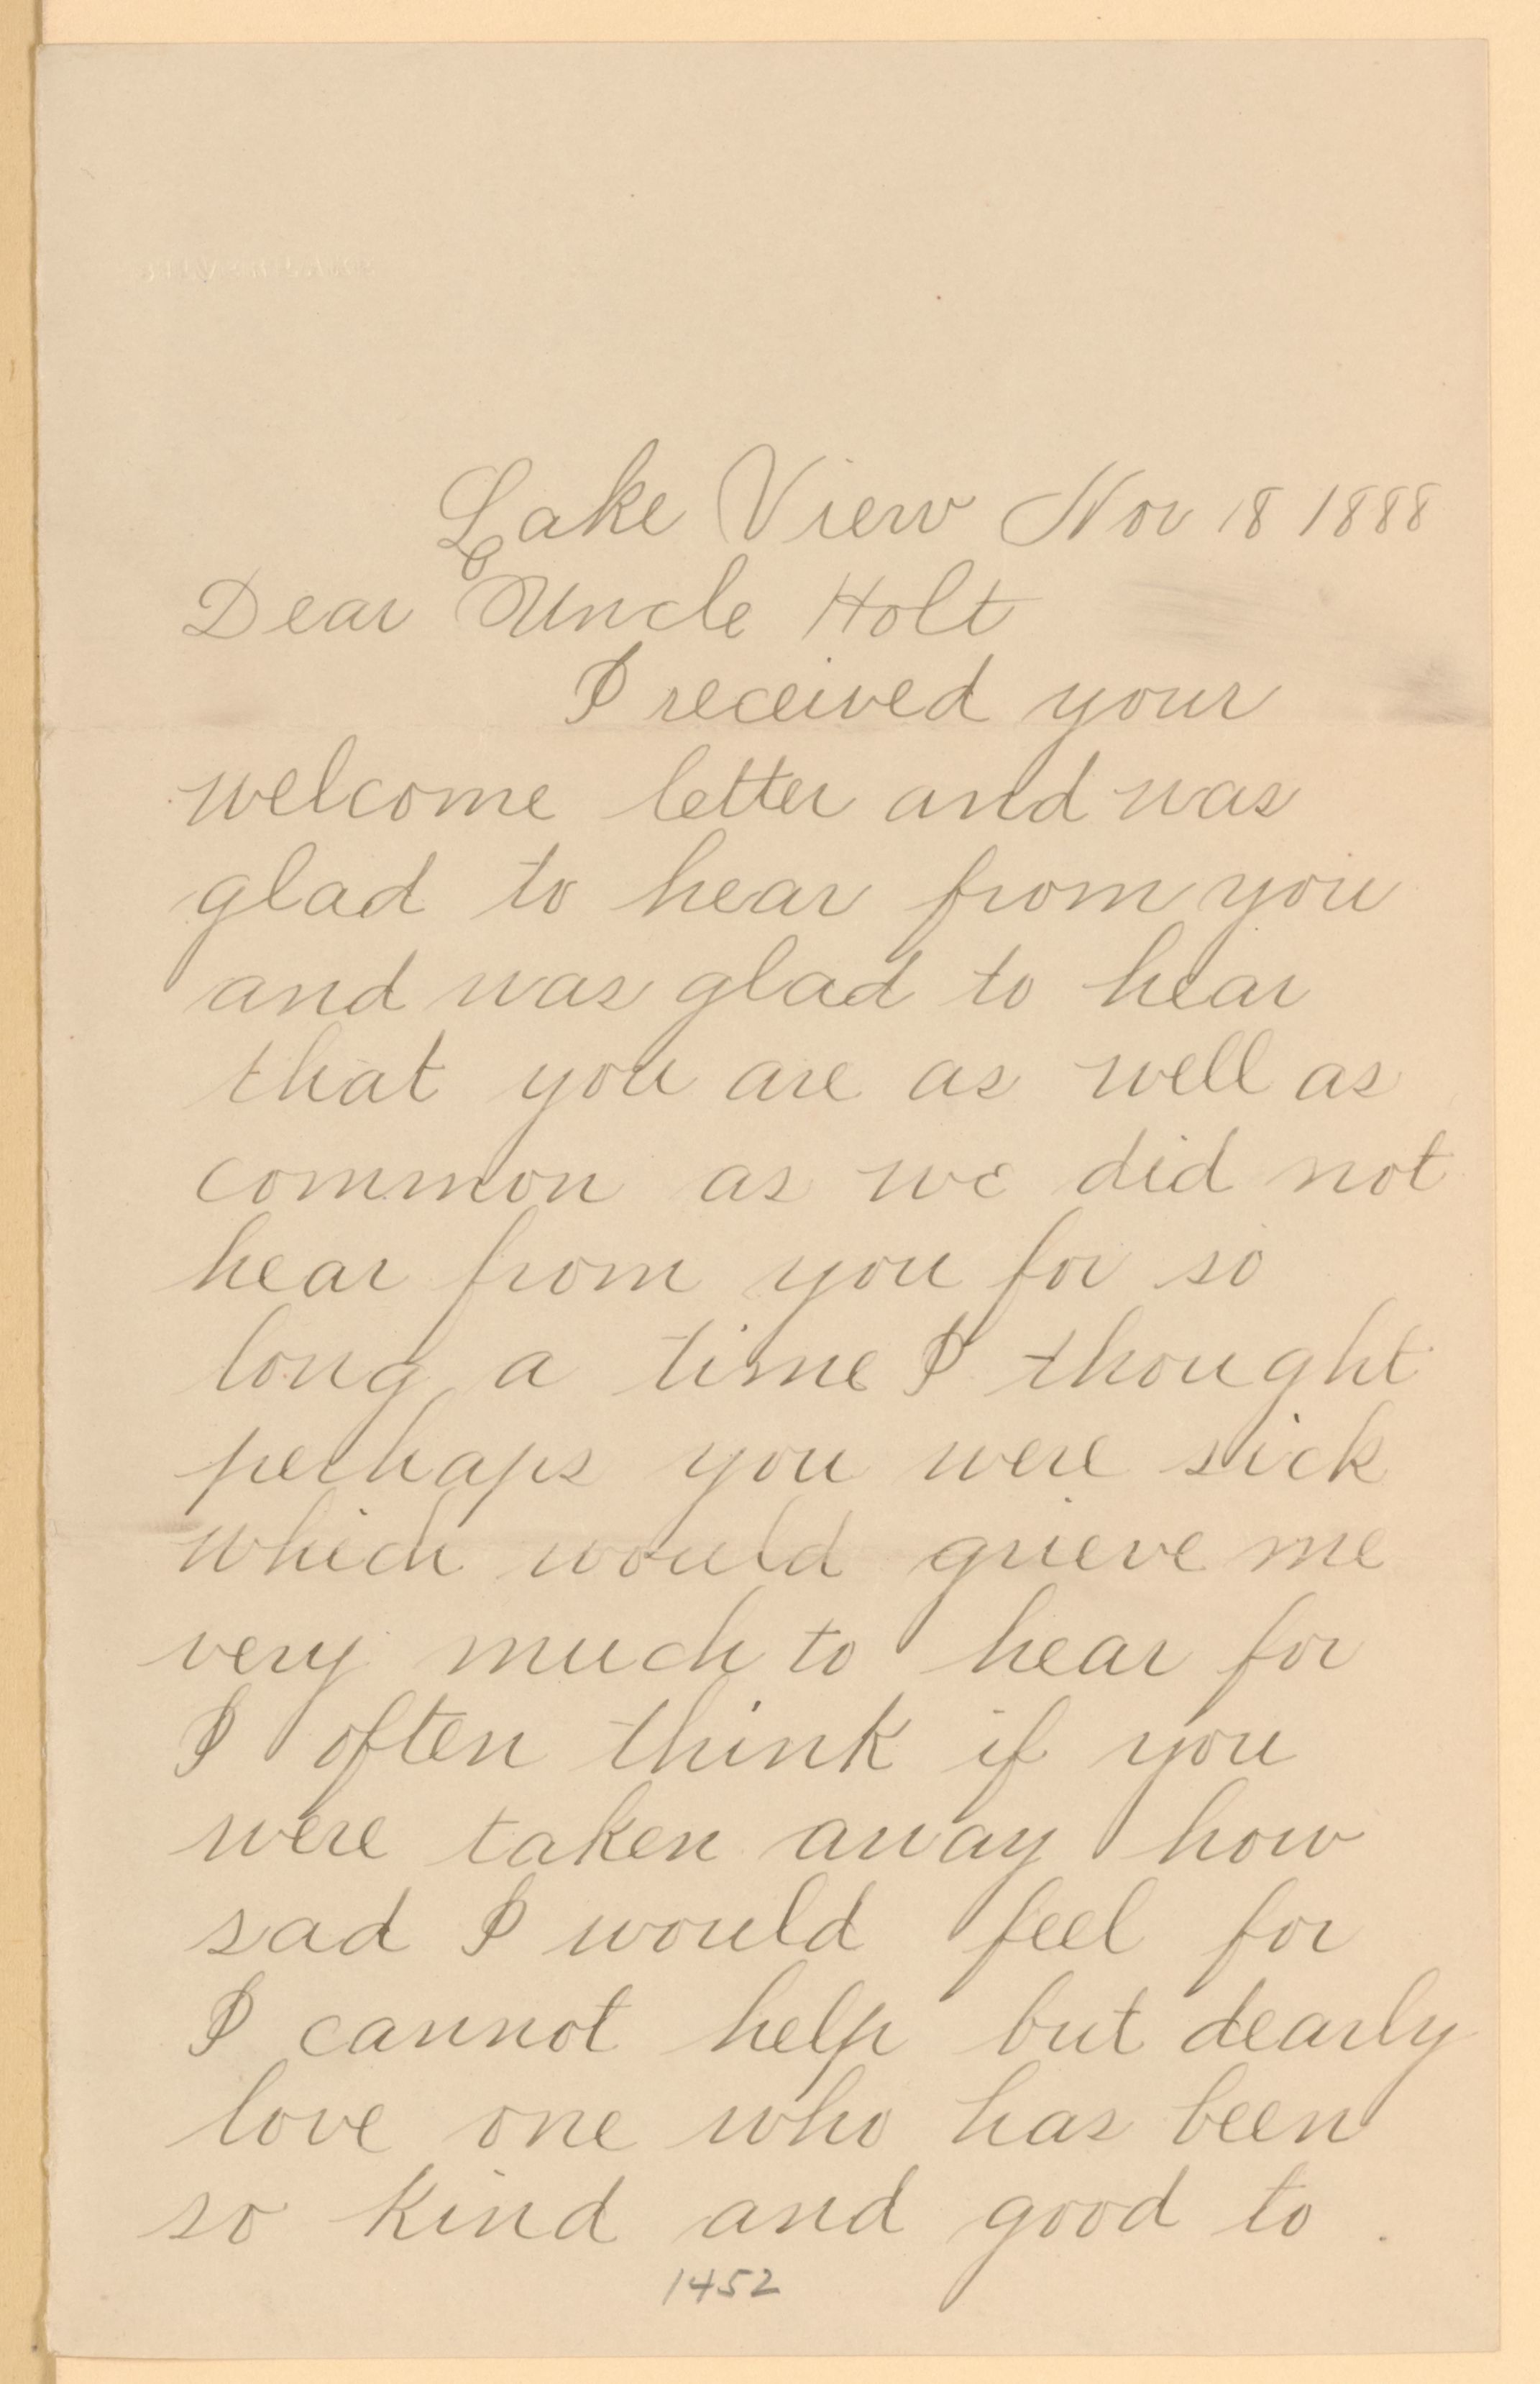 Lake View Nov 18 1888
Dear Uncle Holt
I received your
welcome letter and was
glad to hear from you
and was glad to hear
that you are as well as
common as we did not
hear from you for so
long a time I thought
perhaps you were sick
which would grieve me
very much to hear for
I often think if you
were taken away how
sad I would feel for
I cannot help but dearly
love one who has been
so kind and good to
1452